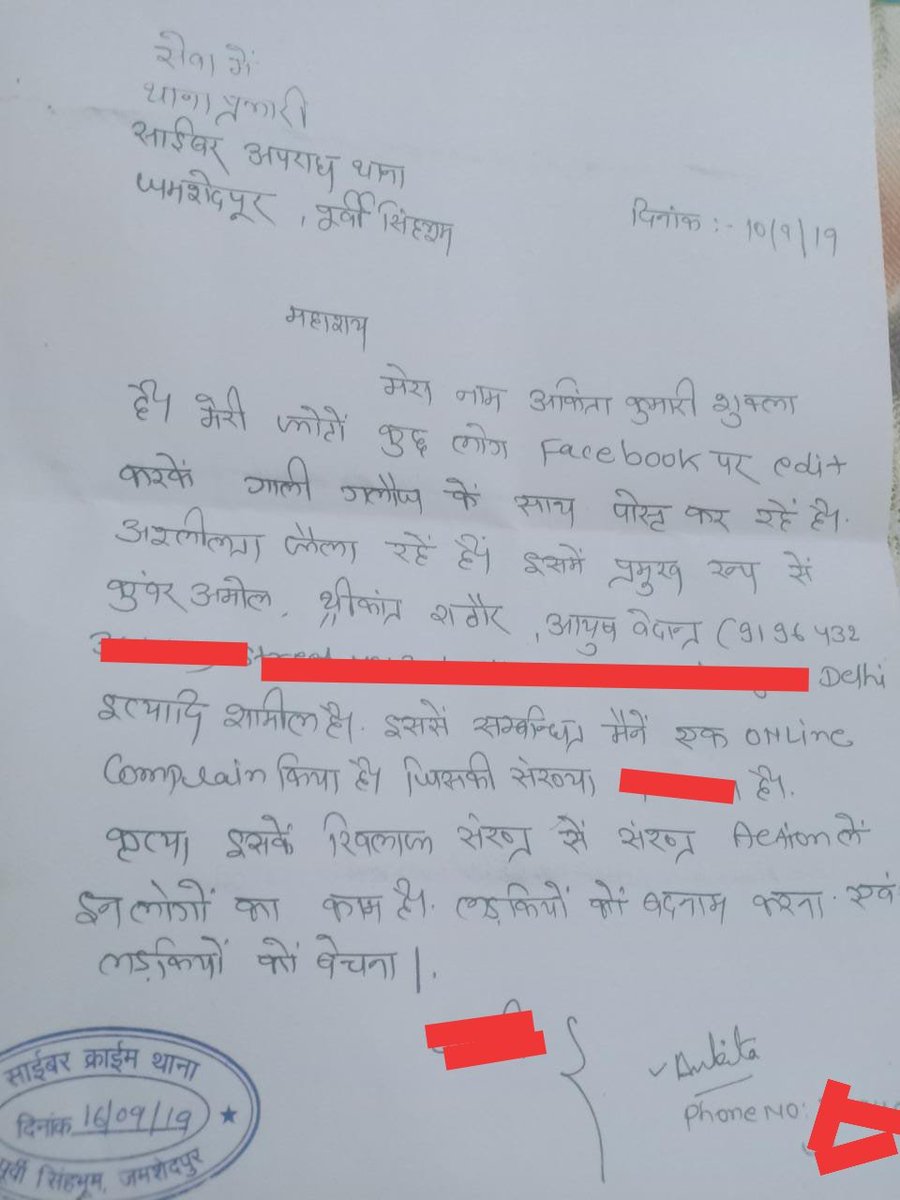 सेवा में
थाना प्रभारी
साईबर अपराध थाना
जमशेदपूर , पूर्वी सिंहभूम
दिनांक :- 10/9/19
महाशय
मेरा नाम अंकिता कुमारी शुक्ला
है। मेरी फोटों कुछ लोग Facebook पर edit
करकें गाली गलौज कें साथ पोस्ट कर रहें है।
अश्लीलता फैला रहें हैं। इसमें प्रमुख रूप सें
कुंवर अमोल , श्रीकांत राठौर , आयुष वेदान्त (9196432
Delhi
इत्यादि शामील है। इससें सम्बन्धित मैनें एक ONLine
Complain किया है। जिसकी संख्या है।
कृप्या इसकें खिलाफ सख्त सें सख्त Action लें
इन लोगों का काम है। लड़कियों कों बदनाम करना एवं
लड़कियों कों बेचना |.
Ankita
Phone NO:
साईबर क्राईम थाना
दिनांक 16/09/19
पूर्वी सिंहभूम, जमशेदपुर